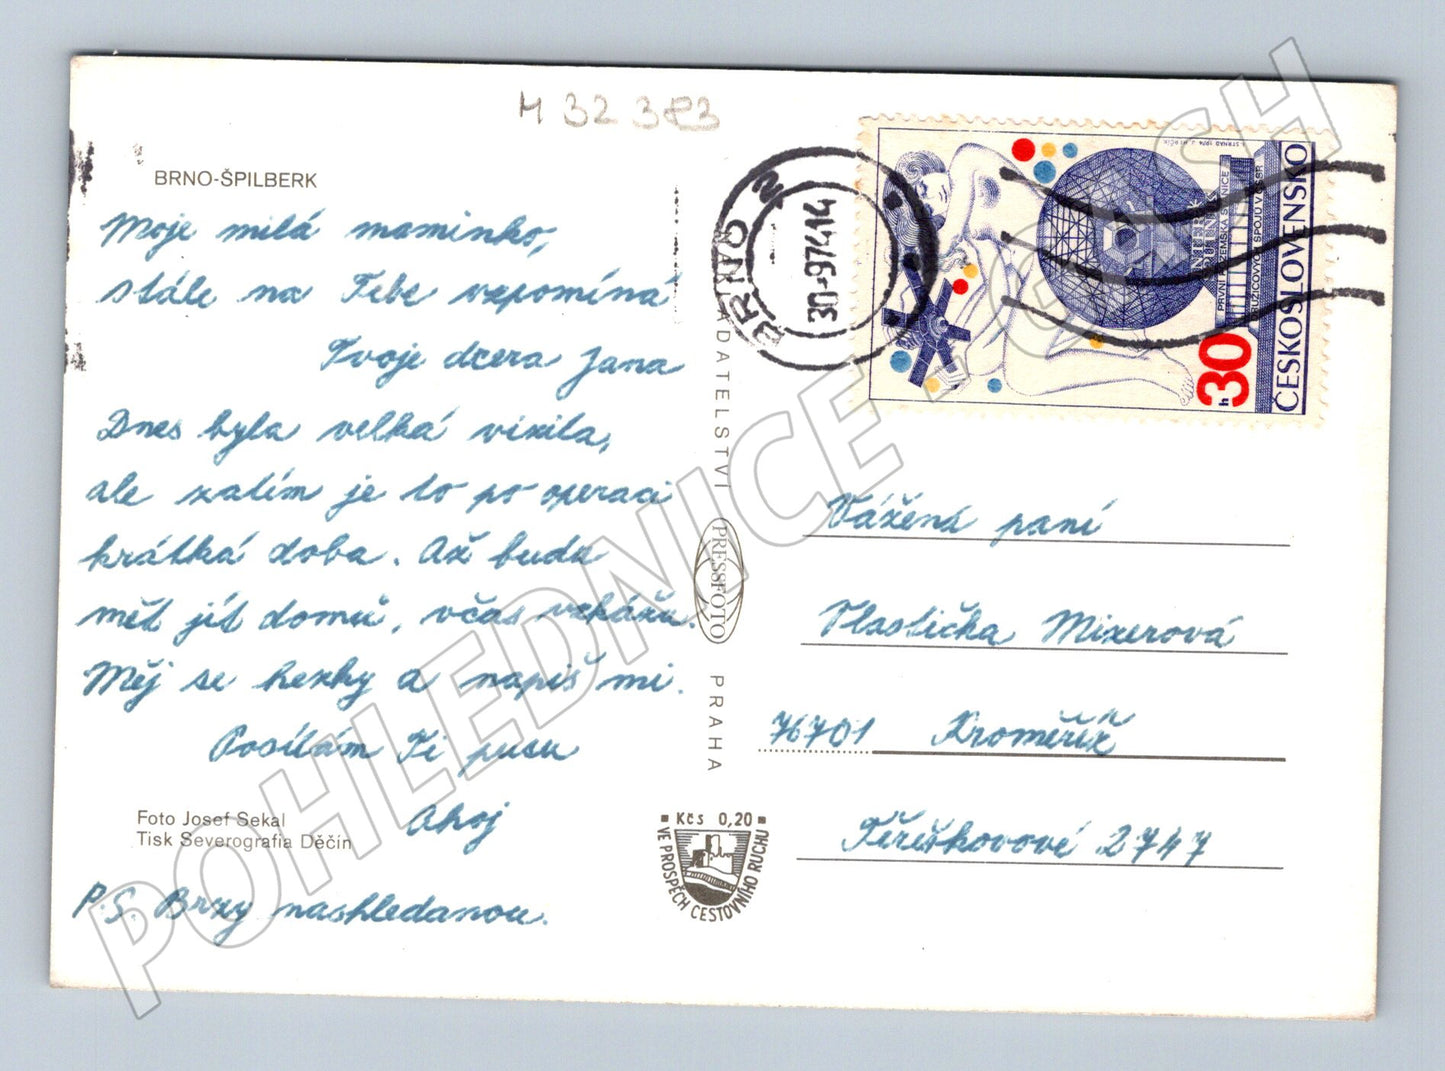 M 32 323
BRNO-ŠPILBERK
Moje milá maminko,
stále na Tebe vzpomíná
Tvoje dcera Jana
Dnes byla velká vizita,
ale zatím je to po operaci
krátká doba. Až budu
mět jít domů, včas vzkážu.
Měj se hezky a napiš mi.
Posílám Ti pusu
Ahoj
Foto Josef Sekal
Tisk Severografia Děčín
P.S. Brzy nashledanou.
NAKLADATELSTVÍ
PRESSFOTO
PRAHA
Kčs 0,20
VE PROSPĚCH CESTOVNÍHO RUCHU
BRNO 2
30.-9.74 14
I. STRNAD 1974 J. HERČÍK
INTER SPUTNIK
PRVNÍ POZEMSKÁ STANICE
DRUŽICOVÝCH SPOJŮ V ČSSR
ČESKOSLOVENSKO
30 h
Vážená paní
Vlastička Mixerová
76701 Kroměříž
Těreškovové 2747
POHLEDNICE - CASH